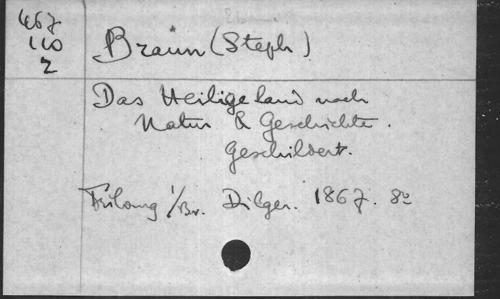 467
110
2
Braun (Steph)
Das Heilige land nach
Natur & Geschichte.
Geschildert.
i/Br. Dilger. 1867. 8º